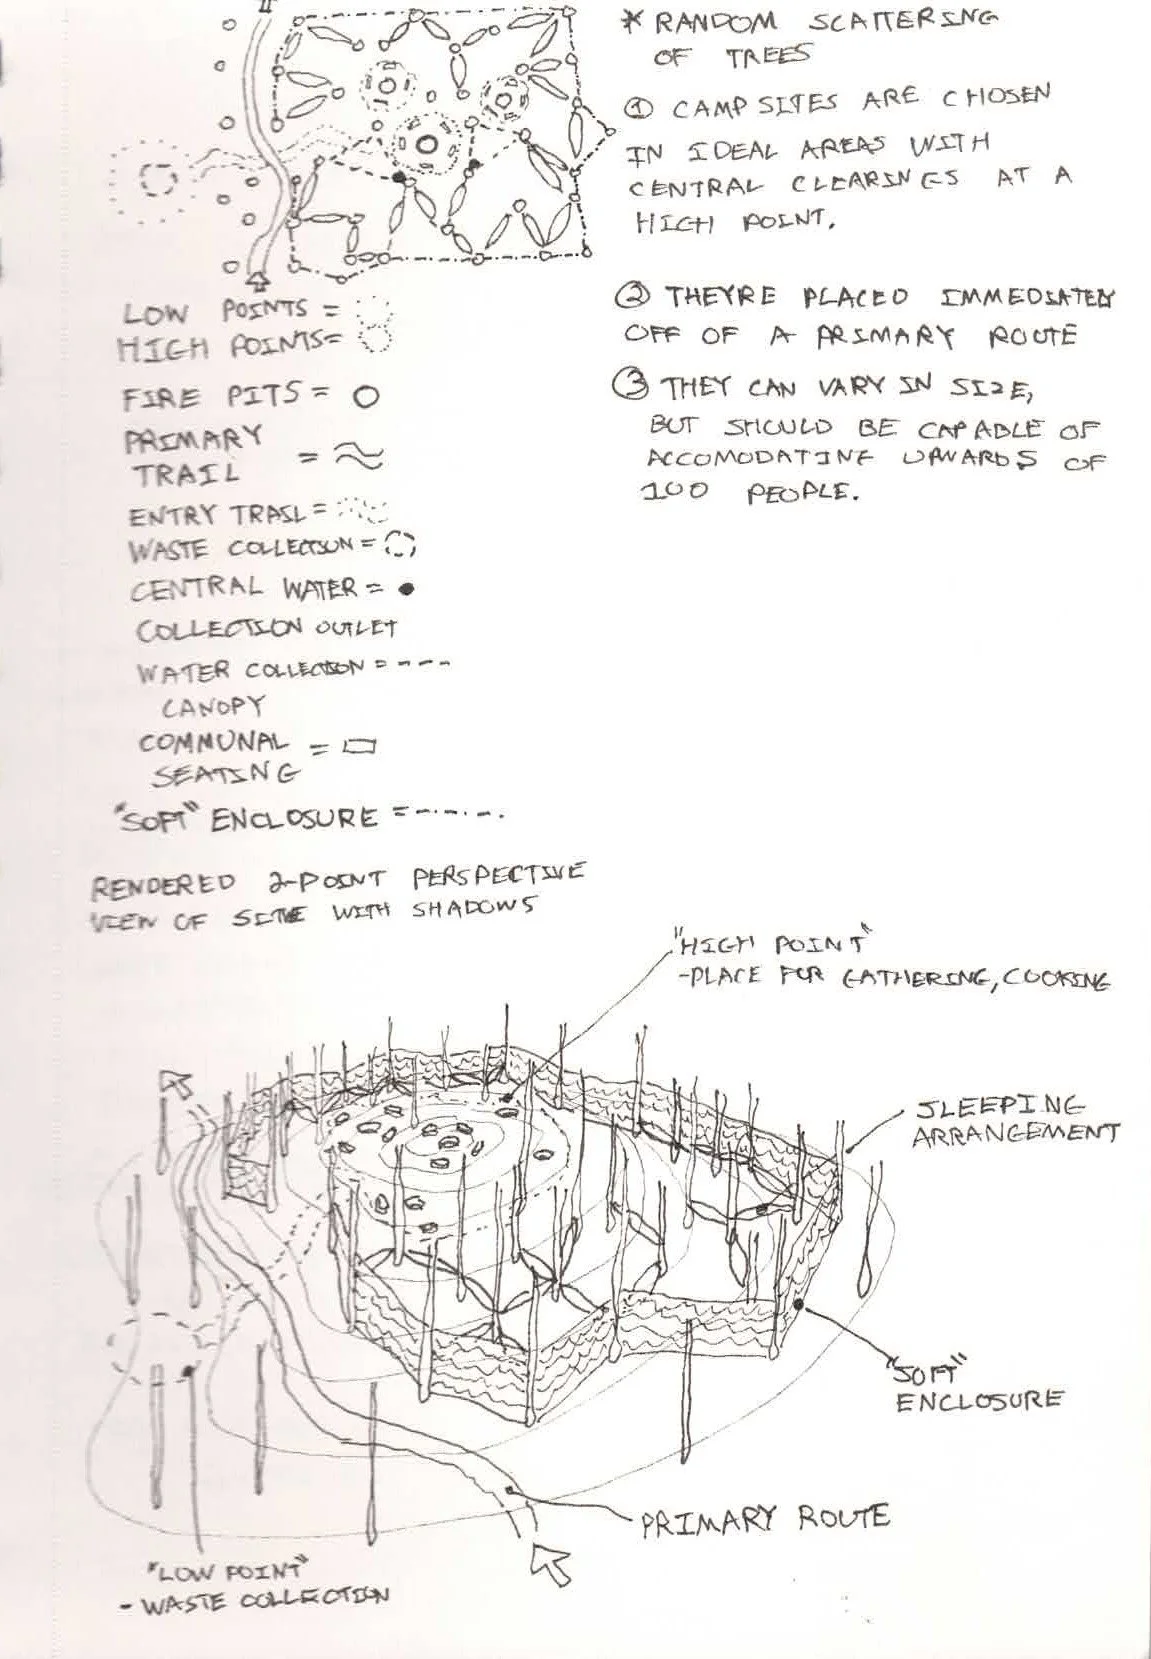 * RANDOM SCATTERING
OF TREES
① CAMPSITES ARE CHOSEN
IN IDEAL AREAS WITH
CENTRAL CLEARINGS AT A
HIGH POINT.
② THEYRE PLACED IMMEDIATELY
OFF OF A PRIMARY ROUTE
③ THEY CAN VARY IN SIZE,
BUT SHOULD BE CAPABLE OF
ACCOMODATING UPWARDS OF
100 PEOPLE.
LOW POINTS =
HIGH POINTS=
FIRE PITS =
PRIMARY
TRAIL =
ENTRY TRAIL =
WASTE COLLECTION =
CENTRAL WATER =
COLLECTION OUTLET
WATER COLLECTION =
CANOPY
COMMUNAL =
SEATING
"SOFT" ENCLOSURE =
RENDERED 2-POINT PERSPECTIVE
VIEW OF SITE WITH SHADOWS
"HIGH POINT"
-PLACE FOR GATHERING, COOKING
SLEEPING
ARRANGEMENT
"SOFT"
ENCLOSURE
PRIMARY ROUTE
"LOW POINT"
- WASTE COLLECTION